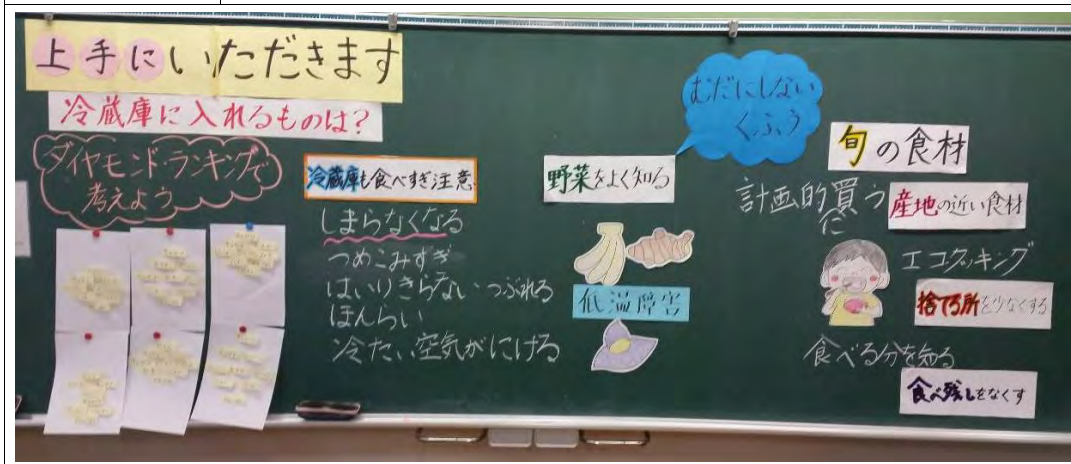 上手にいただきます
冷蔵庫に入れるものは？
ダイヤモンド・ランキングで
考えよう
冷蔵庫も食べすぎ注意
しまらなくなる
つめこみすぎ
はいりきらない つぶれる
ほんらい
冷たい空気がにげる
野菜をよく知る
低温障害
むだにしない
くふう
旬の食材
計画的に買う
産地の近い食材
エコクッキング
捨てる所を少なくする
食べる分を知る
食べ残しをなくす